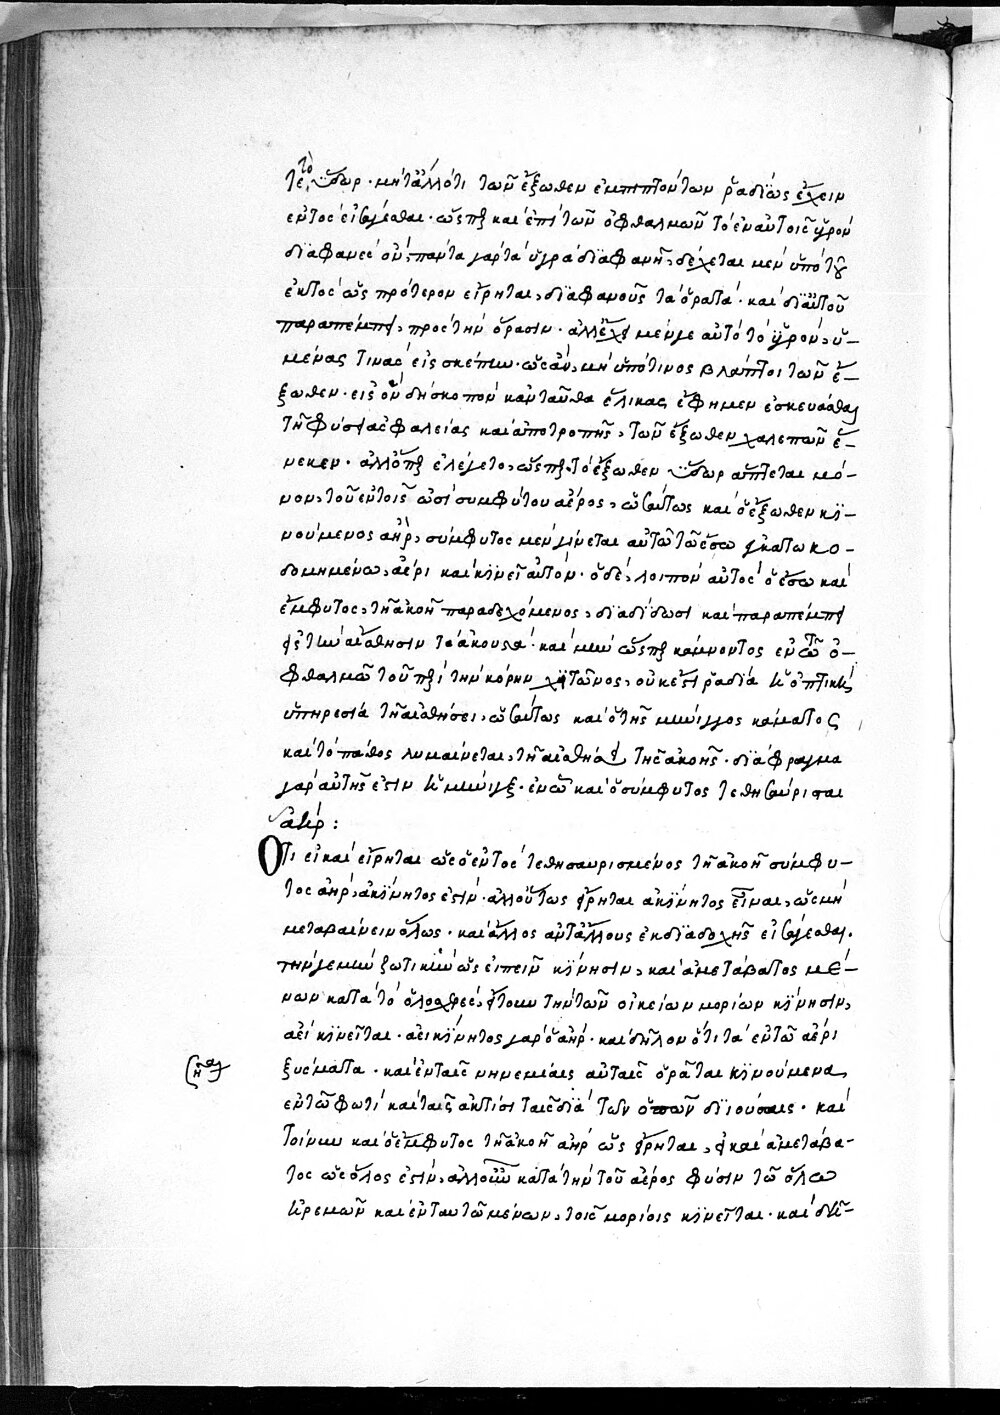 τε τὸ ὕδωρ · μήτ' ἄλλό τι τῶν ἔξωθεν ἐμπιπτόντων ῥαδίως ἔχειν
ἐντὸς εἰσρέεσθαι · ὥσπερ καὶ ἐπὶ τῶν ὀφθαλμῶν τὸ ἐν αὐτοῖς ὑγρὸν
διαφανὲς ὂν, πάντα γὰρ τὰ ὑγρὰ διαφανῆ, δέχεται μὲν ὑπὸ τοῦ
ἐκτὸς ὡς πρότερον εἴρηται, διαφανοῦς τὰ ὁρατά · καὶ δι' αὐτοῦ
παραπέμπει, πρὸς τὴν ὅρασιν · ἀλλ' ἔχει μέν γε αὐτὸ τὸ ὑγρὸν, ὑ-
μένας τινας εἰς σκέπην · ὡς ἂν, μὴ ὑπό τινος βλάπτοιτο τῶν ἔ-
ξωθεν · εἰς ὃν δὴ σκοπὸν κἀνταῦθα ἕλικας ἔφημεν ἐσκευάσθαι
τῇ φύσει ἀσφαλείας καὶ ἀποτροπῆς, τῶν ἔξωθεν χαλεπῶν ἕ-
νεκεν · ἀλλ' ὅπερ ἐλέγετο, ὥσπερ τὸ ἔξωθεν ὕδωρ ἅπτεται μό-
νον, τοῦ ἐν τοῖς ὠσὶ συμφύτου ἀέρος, ὡσαύτως καὶ ὁ ἔξωθεν κι-
νούμενος ἀὴρ, σύμφυτος μὲν γίνεται αὐτῷ τῷ ἔσω ἐγκατῳκο-
δομημένῳ, ἀέρι καὶ κινεῖ αὐτόν · ὁ δὲ, λοιπὸν αὐτὸς ὁ ἔσω καὶ
ἔμφυτος, τῇ ἀκοῇ παραδεχόμενος, διαδίδωσι καὶ παραπέμπει
εἰς τὴν αἴσθησιν τὰ ἀκουστά · καὶ μὴν ὥσπερ κάμνοντος ἐν τῷ ὀ-
φθαλμῷ τοῦ περὶ τὴν κόρην χιτῶνος, οὐκ ἔστι ῥαδία ἡ ὀπτικὴ
ὑπηρεσία τῇ αἰσθήσει, ὡσαύτως καὶ ὁ τῆς μήνιγγος κάματος
καὶ τὸ πάθος λυμαίνεται, τῇ αἰσθήσει τῆς ἀκοῆς · διάφραγμα
γὰρ αὐτῆς ἐστιν ἡ μήνιγξ · ἐν ᾧ καὶ ὁ σύμφυτος τεθησαύρισται
ἀήρ :
Ὅτι εἰ καὶ εἴρηται ὡς ὁ ἐντὸς τεθησαυρισμένος τῇ ἀκοῇ σύμφυ-
τος ἀὴρ, ἀκίνητος ἐστιν · ἀλλ' οὕτως εἴρηται ἀκίνητος εἶναι, ὡς μὴ
μεταβαίνειν ὅλως · καὶ ἄλλος ἀντ' ἄλλους ἐκ διαδοχῆς εἰσρέεσθαι ·
τὴν γε μὴν ζωτικὴν ὡς εἰπεῖν κίνησιν, καὶ ἀμετάβατος μέ-
νων κατὰ τὸ ὁλοσχερὲς, ἤτοι τὴν τῶν οἰκείων μορίων κίνησιν,
ἀεὶ κινεῖται · ἀεικίνητος γὰρ ὁ ἀήρ · καὶ δῆλον ὅτι τὰ ἐν τῷ ἀέρι
ξύσματα · καὶ ἐν ταῖς νηνεμίαις αὐταῖς ὁρᾶται κινούμενα,
ἐν τῷ φωτὶ καὶ ταῖς ἀκτῖσι ταῖς διὰ τῶν ὀπῶν διιούσαις · καὶ
τοίνυν καὶ ὁ ἔμφυτος τῇ ἀκοῇ ἀὴρ ὡς εἴρηται, εἰ καὶ ἀμετάβα-
τος ὡς ὅλος ἐστὶν, ἀλλ' οὖν κατὰ τὴν τοῦ ἀέρος φύσιν τῷ ὅλῳ
ἠρεμῶν καὶ ἐν ταυτῷ μένων, τοῖς μορίοις κινεῖται · καὶ δὴ-